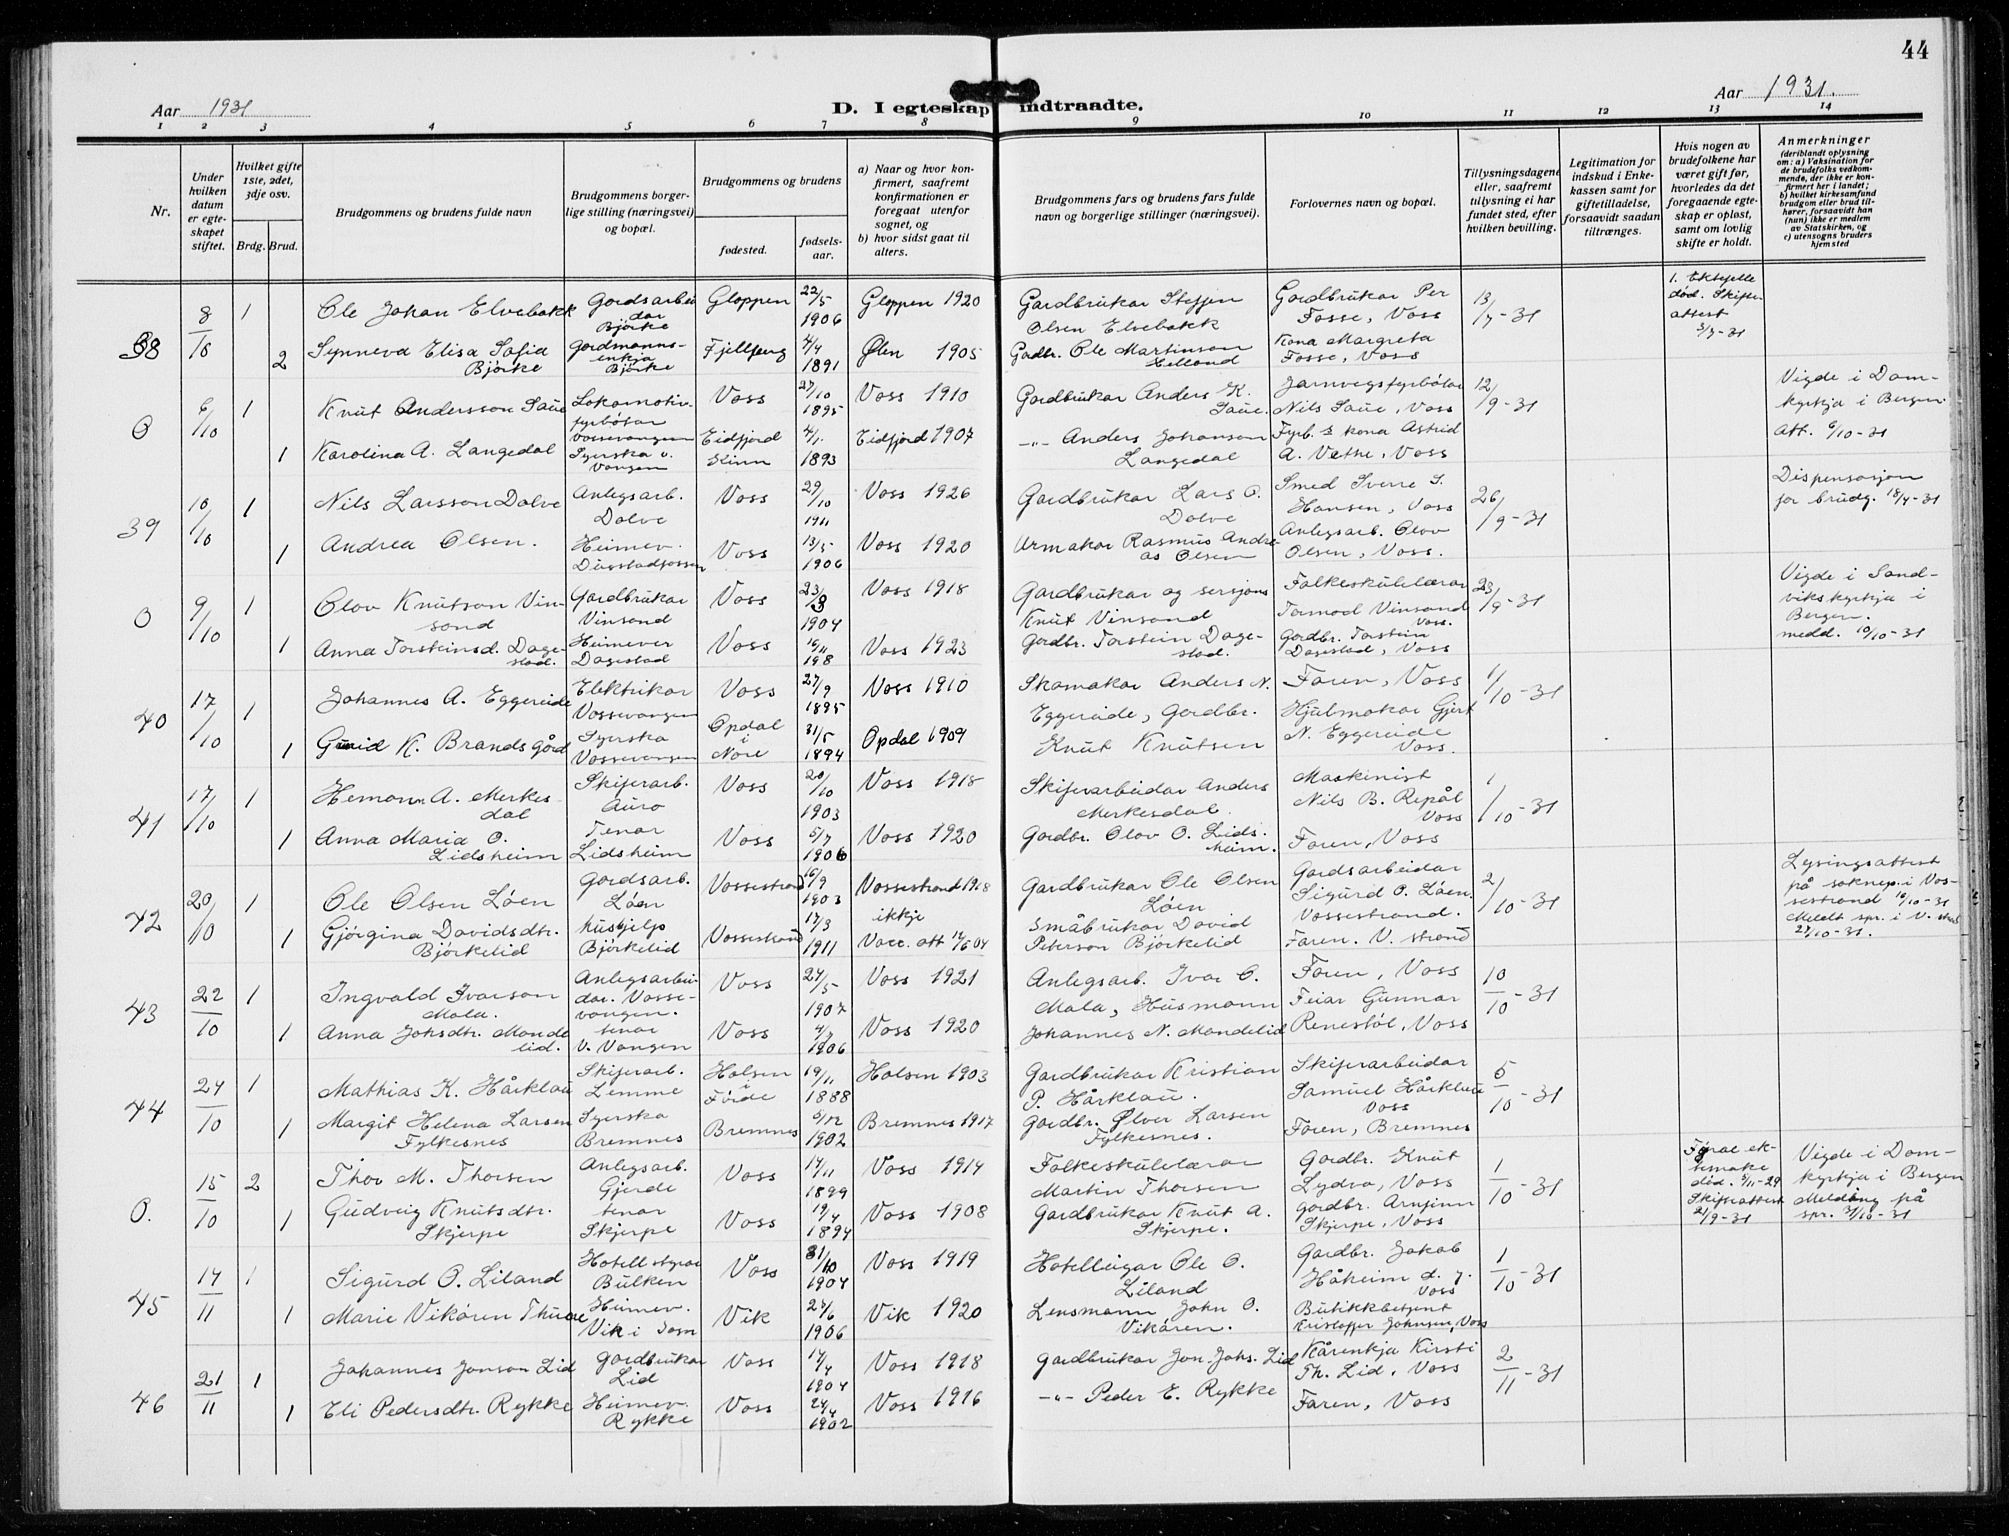 44
Aar 1931
D. I egteskap indtraadte.
Aar 1931.
1 2 3 4 5 6 7 8 9 10 11 12 13 14
Nr.
Under hvilken datum er egteskapet stiftet.
Hvilket gifte 1ste, 2det, 3dje osv.
Brdg. Brud.
Brudgommens og brudens fulde navn
Brudgommens borgerlige stilling (næringsvei) og bopæl.
Brudgommens og brudens
fødested.
fødselsaar.
a) Naar og hvor konfirmert, saafremt konfirmationen er foregaat utenfor sognet, og
b) hvor sidst gaat til alters.
Brudgommens fars og brudens fars fulde navn og borgerlige stillinger (næringsvei).
Forlovernes navn og bopæl.
Tillysningsdagene eller, saafremt tillysning ei har fundet sted, efter hvilken bevilling.
Legitimation for indskud i Enkekassen samt for giftetilladelse, forsaavidt saadan tiltrænges.
Hvis nogen av brudefolkene har været gift før, hvorledes da det foregaaende egteskap er opløst, samt om lovlig skifte er holdt.
Anmerkninger
(deriblandt oplysning om: a) Vaksination for de brudefolks vedkommende, der ikke er konfirmert her i landet;
b) hvilket kirkesamfund brudgom eller brud tilhører, forsaavidt han (hun) ikke er medlem av Statskirken, og
c) utensogns bruders hjemsted
38 8/10 1 Ole Johan Elvebakk Gardsarbeidar Bjørke Gloppen 22/5 1906 Gloppen 1920 Gardbrukar Steffen Olsen Elvebakk Gardbrukar Per Fosse, Voss 13/7-31 1. ektefelle død. Skifteattest 3/7-31
2 Synneva Elisa Sofia Bjørke Gardmannsenkja Bjørke Fjellberg 4/4 1891 Ølen 1905 Gardbr. Ole Martinson Helland Kona Margreta Fosse, Voss
0 6/10 1 Knut Andersson Saue Lokomotivfyrbøtar Vossevangen Voss 27/10 1895 Voss 1910 Gardbrukar Anders K. Saue. Jarnvegsfyrbøtar Nils Saue, Voss 12/9-31 Vigde i Domkyrkja i Bergen. Att. 6/10-31
1 Karolina A. Langedal Syerska v. Vangen Eidfjord Kinn 4/1 1893 Eidfjord 1907 -"- Anders Johanson Langedal Fyrb. kona Astrid A. Vethe, Voss
39 10/10 1 Nils Larsson Dolve Anlegsarb. Dolve Voss 29/10 1911 Voss 1926 Gardbrukar Lars O. Dolve Smed Sverre S. Hansen, Voss 26/9-31 Dispensasjon for brudg. 18/7-31
1 Andrea Olsen. Heimev. Voss 13/5 1906 Voss 1920 Urmakar Rasmus Andreas Olsen Anlegsarb. Olov Olsen, Voss.
0 9/10 1 Olov Knutson Vinsand Gardbrukar Vinsand Voss 23/8 1904 Voss 1918 Gardbrukar og sersjant Knut Vinsand Folkeskulelærar Tormod Vinsand Voss. 23/9-31 Vigde i Sandvikskyrkja i Bergen. medd. 10/10-31
1 Anna Torsteinsd. Dagestad. Heimever Dagestad Voss 16/11 198 Voss 1923 Gardbr. Torstein Dagestad. Gardbr. Torstein Dagestad, Voss
40 17/10 1 Johannes A. Eggereide Elektrikar Vossevangen Voss 27/9 1895 Voss 1910 Skomakar Anders N. Eggereide, Gardbr. Faren, Voss 1/10-31
1 Gunid K. Brandsgård Syerska Vossevangen Opdal i Nore 31/5 1894 Opdal 1909 Knut Knutsen Hjulmakar Gjert N. Eggereide Voss.
41 17/10 1 Hemann A. Merkesdal Skiferarb. Auro Voss 20/10 1903 Voss 1918 Skiferarbeidar Anders Merkesdal. Maskinist Nils B. Repål Voss 1/10-31
1 Anna Maria O. Lidsheim Tenar Lidsheim Voss 5/7 1906 Voss 1920 Gardbr. Olov O. Lidsheim. Faren, Voss
42 20/10 1 Ole Olsen Løen Gardsarb. Løen Vossestrand 16/9 1903 Vossestrand 1918 Gardbrukar Ole Olsen Løen Gardsarbeidar Sigurd O. Løen. Vossestrand. 2/10-31 Lysingsattest på soknep. i Vossestrand 16/10-31 Meldt spr. i V. strand 27/10-31.
1 Gjørgina Davidsdtr. Bjørkelid Hushjelp Bjørkelid Vossestrand 17/3 1911 ikkje Vacc. att 12/6 04 Småbrukar David Peterson Bjørkelid Faren. V. strand
43 22/10 1 Ingvald Ivarson Mala. Anlegsarbeidar. Vossevangen. Voss 24/5 1907 Voss 1921 Anlegsarb. Ivar O. Mala, Husmann Faren, Voss 10/10-31
1 Anna Johsdtr. Mandelid. tenar V. Vangen Voss 4/7 1906 Voss 1920 Johannes N. Mandelid Feiar Gunnar Renestøl, Voss
44 24/10 1 Mathias K. Hårklau Skiferarb. Lemme Holsen i Førde 19/11 1888 Holsen 1903 Gardbrukar Kristian P. Hårklau. Skiferarbeidar Samuel Hårklau Voss 5/10-31
1 Margit Helena Larsen Fylkesnes Syerska Bremnes Bremnes 5/12 1902 Bremnes 1917 Gardbr. Ølver Larsen Fylkesnes. Faren, Bremnes
0. 15/10 2 Thor M. Thorsen Anlegsarb. Gjerde Voss 14/11 1899 Voss 1914 Folkeskulelærar Martin Thorsen Gardbr. Knut Lydva, Voss 1/10-31 Førre ektemake død. 5/11-29 Skifteattest 21/9-31 Vigde i Domkyrkja i Bergen Melding på spr. 31/10-31
1 Gudveig Knutsdtr. Skjerpe tenar Skjerpe Voss 19/4 1894 Voss 1908 Gardbrukar Knut A. Skjerpe. Gardbr. Arnfinn Skjerpe, Voss
45 14/11 1 Sigurd O. Liland Hotellstyrar Bulken Voss 31/10 1904 Voss 1919 Hotelleigar Ole O. Liland Gardbr. Jakob Håheim d. y. Voss 1/10-31
1 Marie Vikøren Thue Heimev. Vik i Sogn Vik 27/6 1906 Vik 1920 Lensmann John O. Vikøren. Butikkbetjent Kristoffer Johnsen, Voss
46 21/11 1 Johannes Jonson Lid Gardbrukar Lid Voss 17/4 1904 Voss 1918 Gardbrukar Jon Johs. Lid Kårenkja Kirsti Th. Lid, Voss 2/11-31
1 Eli Pedersdtr. Rykke Heimev. Rykke Voss 24/4 1902 Voss 1916 -"- Peder E. Rykke Faren, Voss